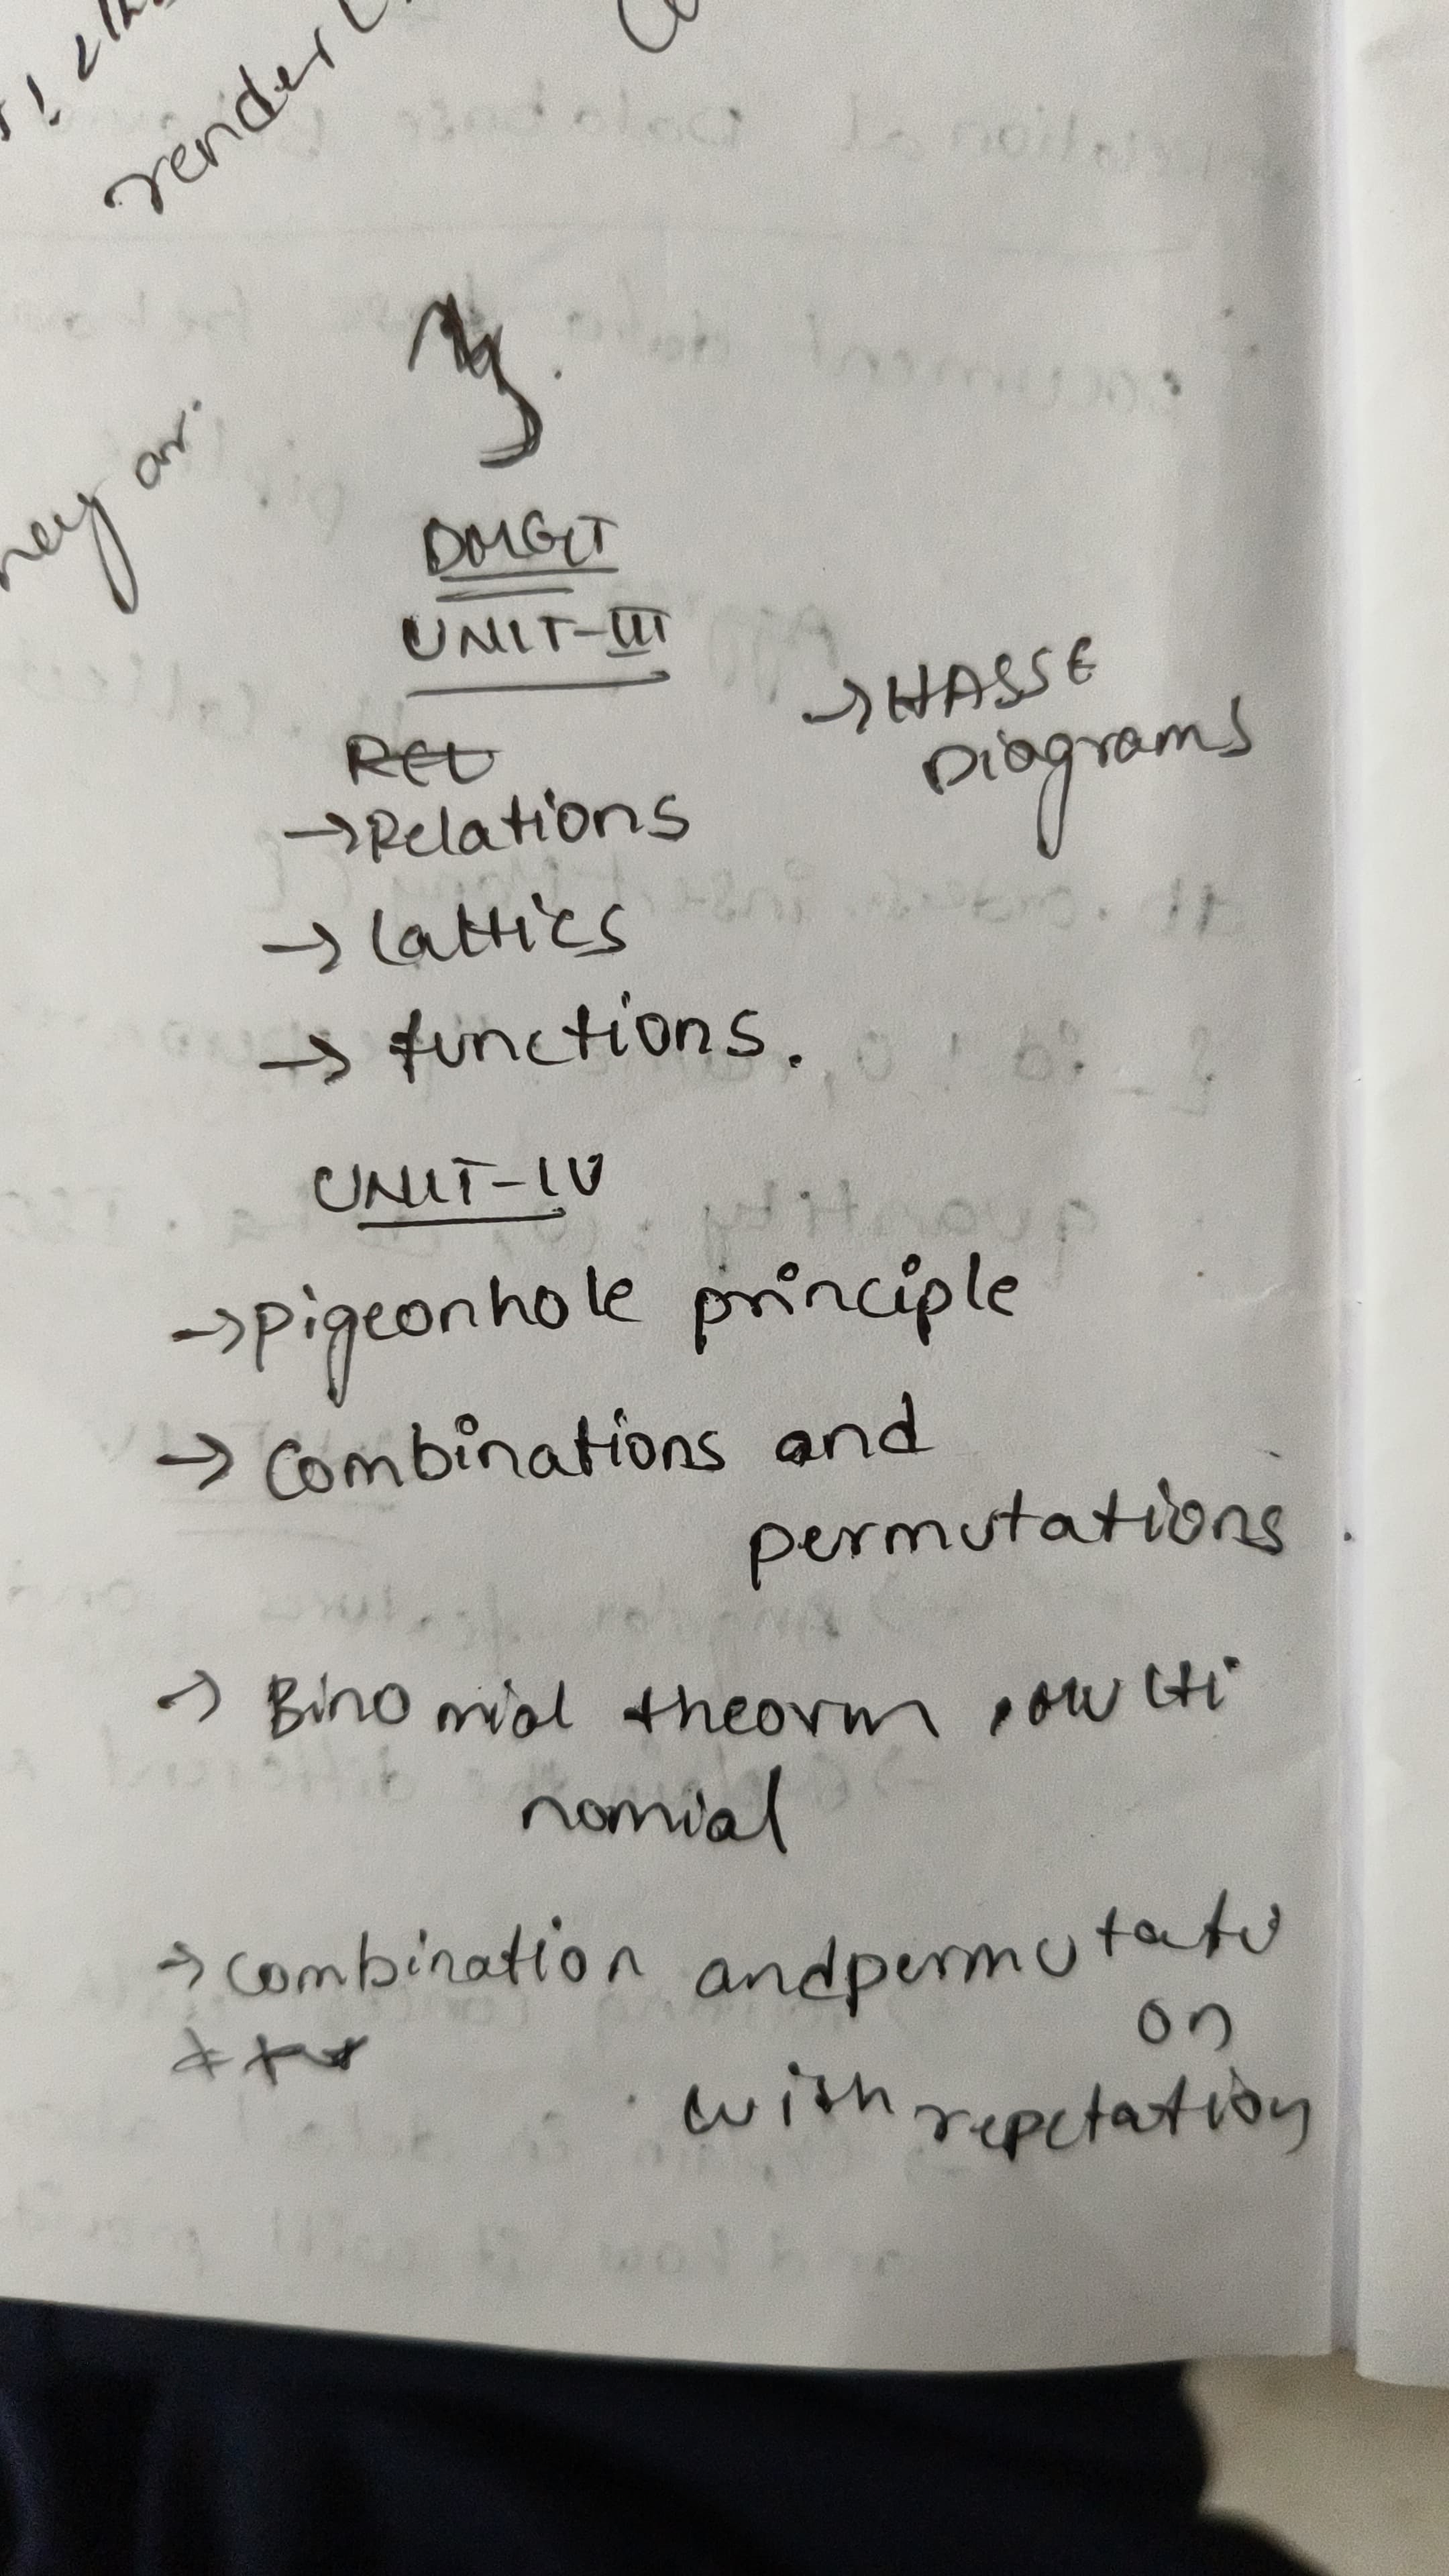 render
hey ar.
DMGT
UNIT-III
→HASSE
Diagrams
Rel
→Relations
→ lattics
→ functions.
UNIT-IV
→pigeonhole principle
→ combinations and
permutations.
→ Binomial theorm, multi
nomial
→combination andpermutati
on
with repetation